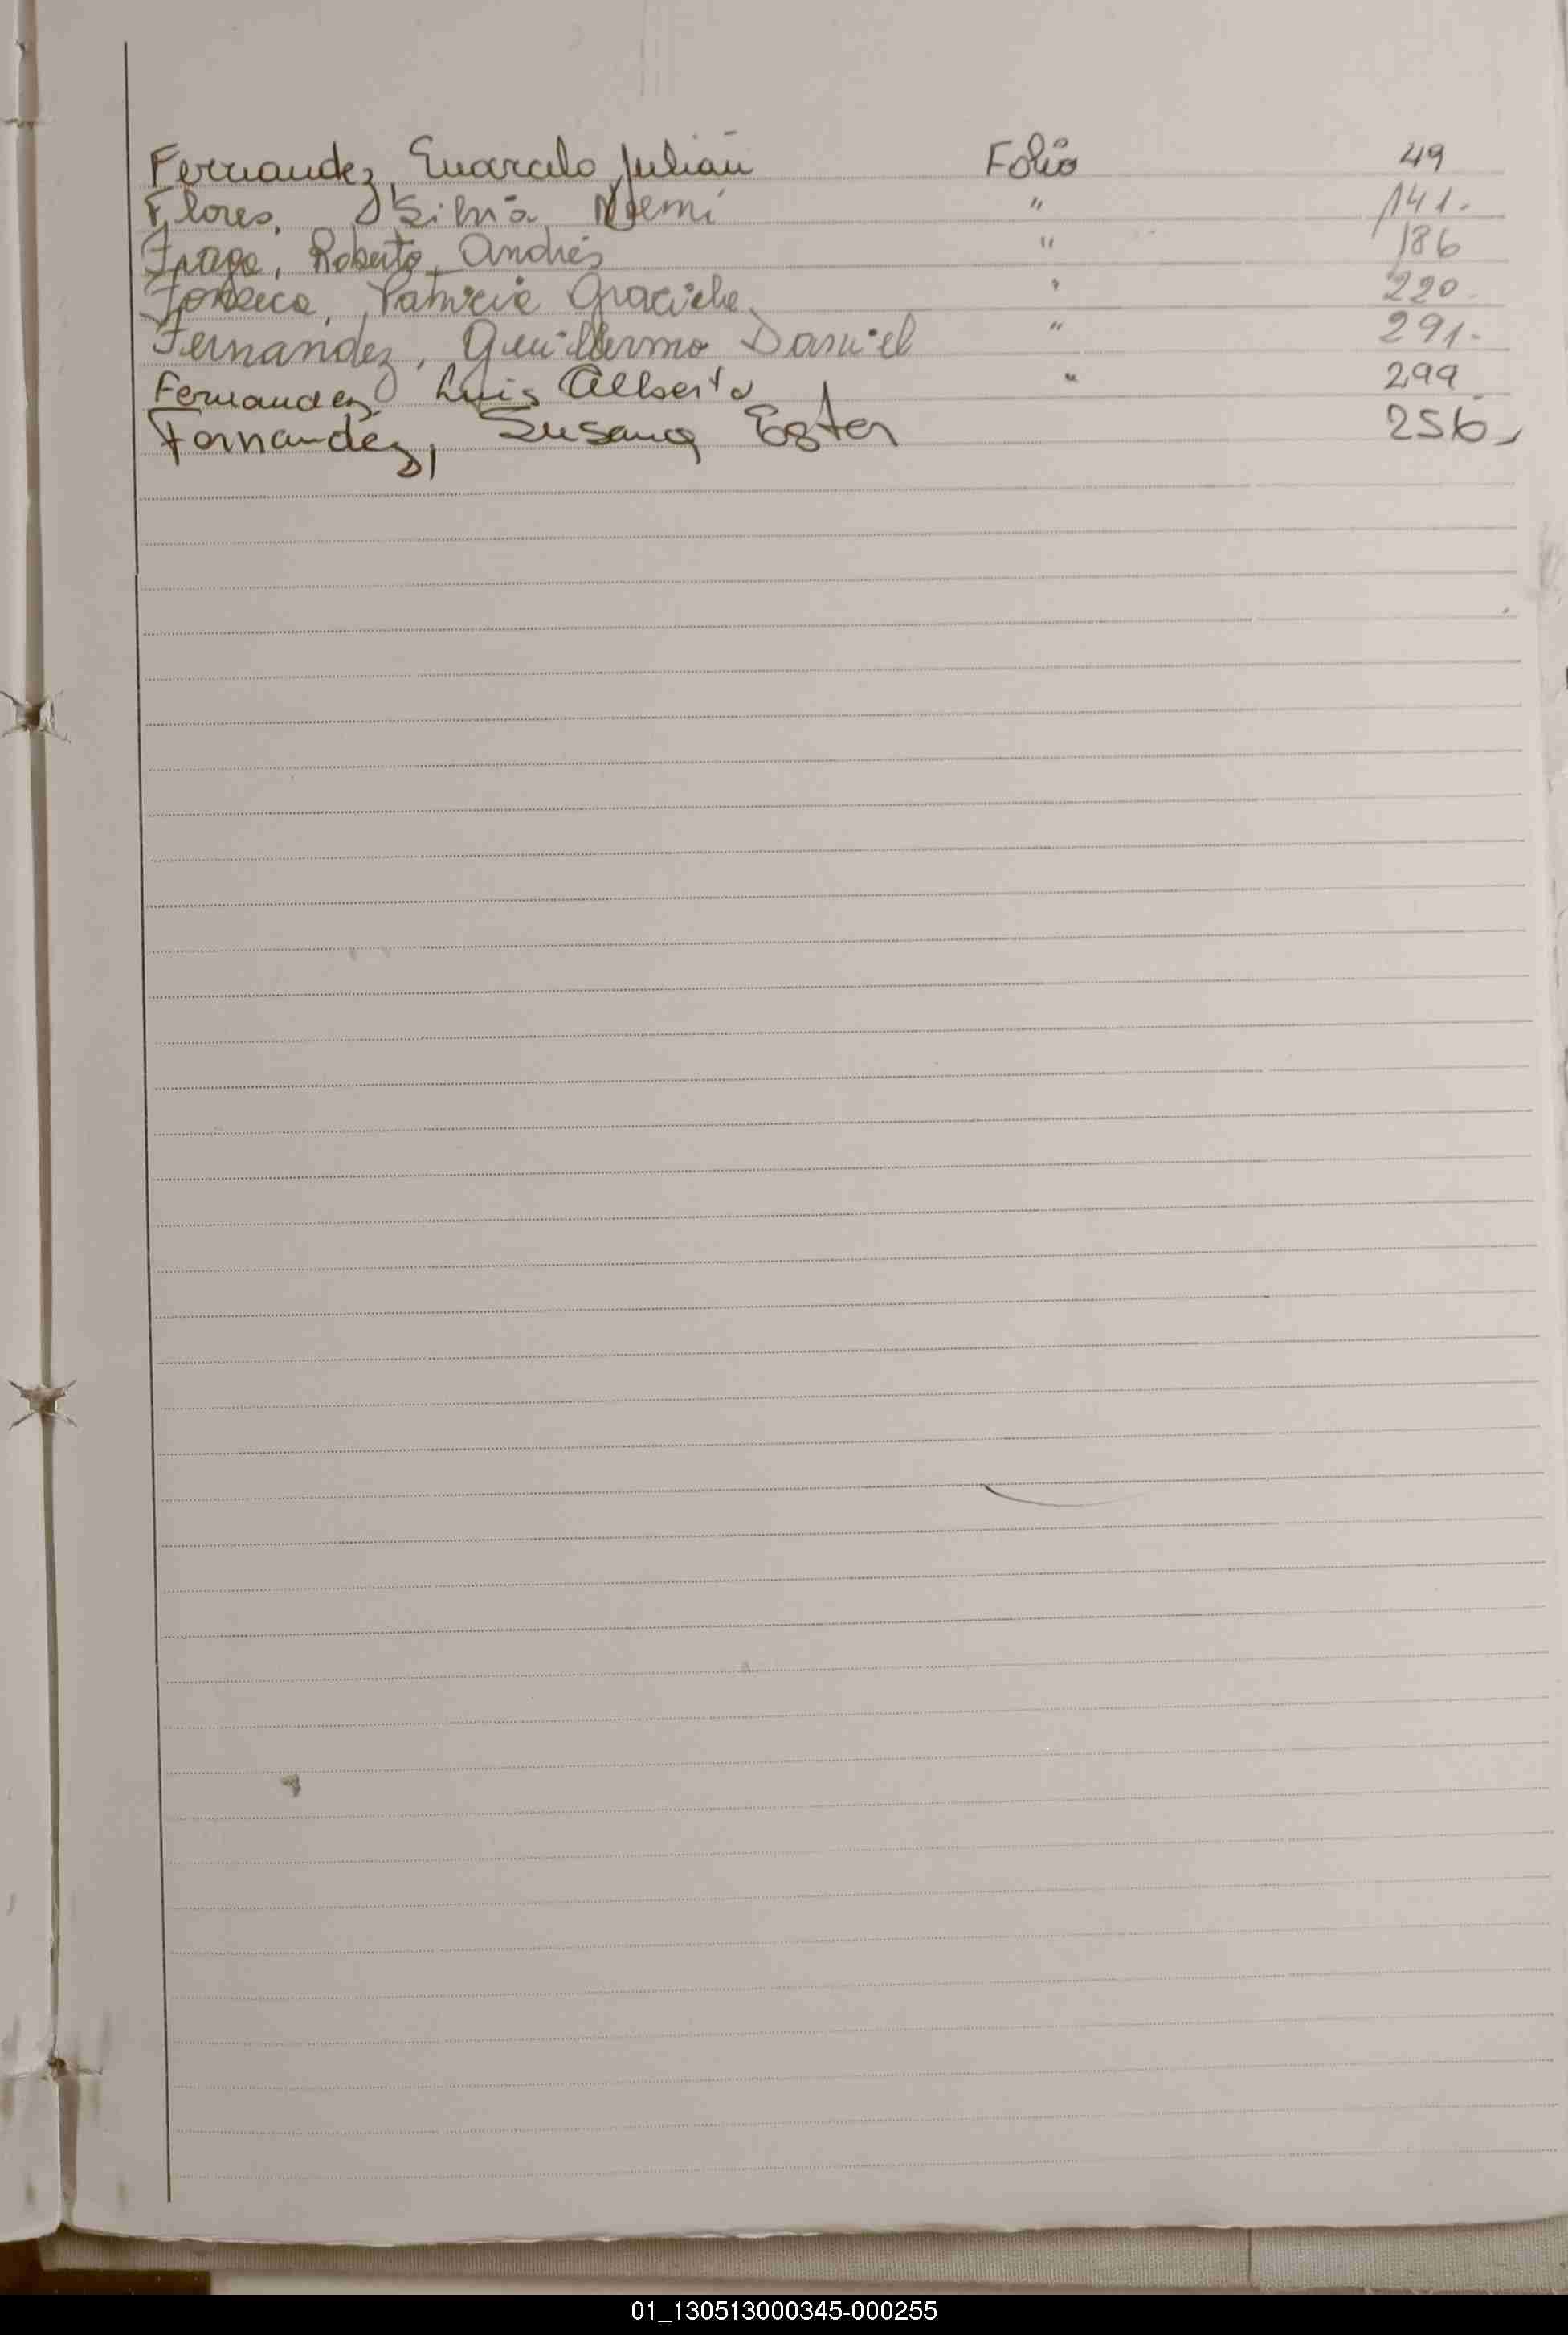 Fernandez, Marcelo Julián Folio 49
Flores, Silvia Noemi " 141.
Fraga, Roberto Andrés " 186
Fonseca, Patricia Graciela " 220.
Fernandez, Guillermo Daniel " 291.
Fernandez Luis Alberto " 299
Fernandez, Susana Ester 256
01_130513000345-000255